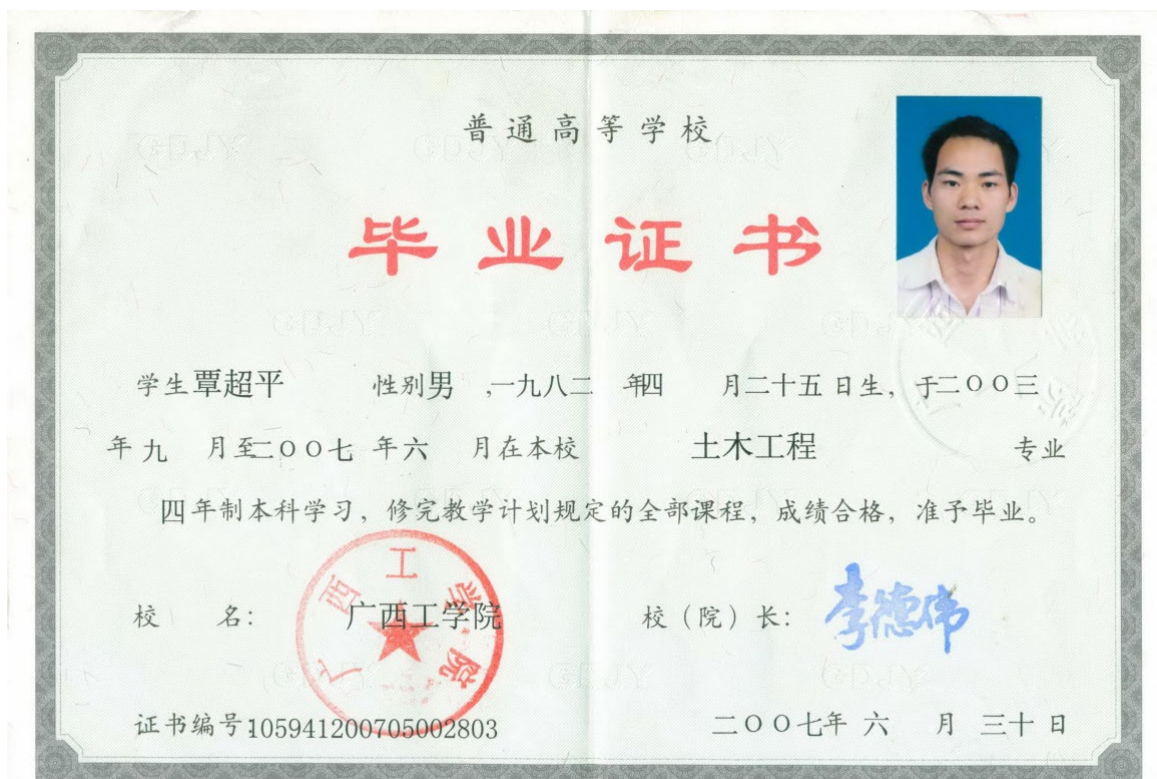 普通高等学校
毕业证书
学生覃超平 性别男 ,一九八二 年四 月二十五日生，于二〇〇三
年九 月至二〇〇七 年六 月在本校 土木工程 专业
四年制本科学习，修完教学计划规定的全部课程，成绩合格，准予毕业。
校 名： 广西工学院 校（院）长： 李德伟
广西工学院
证书编号:105941200705002803 二〇〇七年 六 月 三十 日